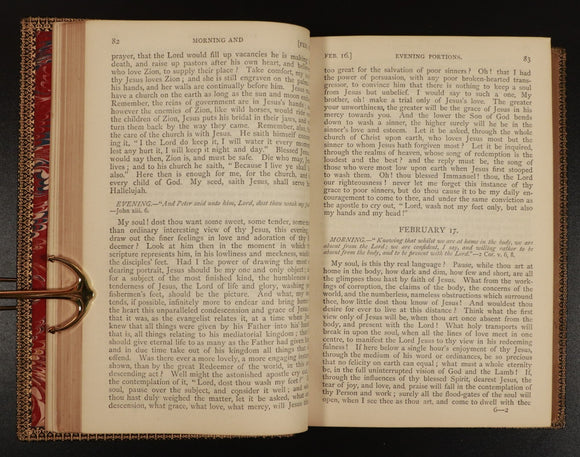 82 MORNING AND [FEB.
prayer, that the Lord would fill up vacancies he is making
death, and raise up pastors after his own heart, and
who love Zion, to supply their place? Take comfort, my
thy Jesus loves Zion; and she is still engraven on the palms
his hands, and her walls are continually before him. Jesus
have a church on the earth as long as the sun and moon
Remember, the reins of government are in Jesus's hands;
however the enemies of Zion, like wild horses, would ride
the children of Zion, Jesus puts his bridal in their jaws, and
turn them back by the way they came. Remember, also,
the care of the church is with Jesus. He saith himself
ing it, "I the Lord do keep it, I will water it every moment
lest any hurt it, I will keep it night and day." Blessed Jesus
would say then, Zion is, and must be safe. Die who may,
lives; and to his church he saith, "Because I live ye shall
also." Here then is enough for me, for the church, and
every child of God. My seed, saith Jesus, shall serve
Hallelujah.
EVENING.—"And Peter said unto him, Lord, dost thou wash my feet?"
—John xiii. 6.
My soul! dost thou want some sweet, some tender, some
than ordinary interesting view of thy Jesus, this evening,
draw out the finer feelings in love and adoration of thy
deemer? Look at him then in the moment in which
scripture represents him, in his lowliness and meekness, washing
the disciples' feet. Had I the power of drawing the most
dearing portrait, Jesus should be my one and only object;
for a subject of the most finished kind, the humbleness
tenderness of Jesus, the Lord of life and glory, washing
fishermen's feet, should be the picture. And what, my
tends, if possible, infinitely more to endear and bring home
the heart this unparalleled condescension and grace of Jesus
that it was, as the evangelist relates it, at a time when
knew that all things were given by his Father into his
that is, all things relating to his mediatorial kingdom;
should give eternal life to as many as the Father had given
and in due time take out of his kingdom all things that
offend. Was there ever a more lovely, a more engaging instance
shown, than by the great Redeemer of the world, in this
descending act? Well might the astonished apostle cry out,
the contemplation of it, "Lord, dost thou wash my feet?"
soul, pause over the subject, and consider it well; and
thou hast duly weighed the matter, let it be asked, what
descension, what grace, what love, what mercy, will Jesus
FEB. 16.] EVENING PORTIONS. 83
too great for the salvation of poor sinners? Oh! that I had
the power of persuasion, with any poor broken-hearted transgressor,
to convince him that there is nothing to keep a soul
from Jesus but unbelief. I would say to such a one, My
brother, oh! make a trial only of Jesus's love. The greater
your unworthiness, the greater will be the grace of Jesus in his
mercy towards you. And the lower the Son of God bends
down to wash a sinner, the higher surely will he be in the
sinner's love and esteem. Let it be asked, through the whole
church of Christ upon earth, who loves Jesus most but the
sinner to whom Jesus hath forgiven most? Let it be inquired,
through the realms of heaven, whose song of redemption is the
loudest and the best? and the reply must be, the song of
those who were most low upon earth when Jesus first stooped
to wash them. Oh! thou blessed Immanuel! thou, the Lord
our righteousness! never let me forget this instance of thy
grace to poor sinners, but do thou cause it to be my daily encouragement
to come to thee, and under the same conviction as
the apostle to cry out, "Lord, wash not my feet only, but also
my hands and my head!"
FEBRUARY 17.
MORNING.—"Knowing that whilst we are at home in the body, we are
absent from the Lord; we are confident, I say, and willing rather to be
absent from the body, and to be present with the Lord."—2 Cor. v. 6, 8.
My soul, is this thy real language? Pause, while thou art at
home in the body, how dark and dim, how few and short, are all
the glimpses thou hast by faith of Jesus. What from the workings
of corruption, the claims of the body, the concerns of the
world, and the numberless, nameless obstructions which surround
thee, how little dost thou know of Jesus! And wouldest thou
desire for ever to live at this distance? Think what the first
view only of Jesus will be, when thou art once absent from the
body, and present with the Lord! What holy transports will
break in upon the soul, when all the lines of love meet in one
centre, to manifest the Lord Jesus to thy view in his redeeming
fulness! If here below a single hour's enjoyment of thy Jesus,
through the medium of his word or ordinances, be so precious
that no felicity on earth can equal; what must a whole eternity
be, in the full uninterrupted vision of God and the Lamb! If,
through the influences of thy blessed Spirit, dearest Jesus, the
tear of joy, and love, and praise will fall in the contemplation of
thy Person and work; surely all the flood-gates of the soul will
open, when I see thee as thou art, and come to dwell with thee
G—2